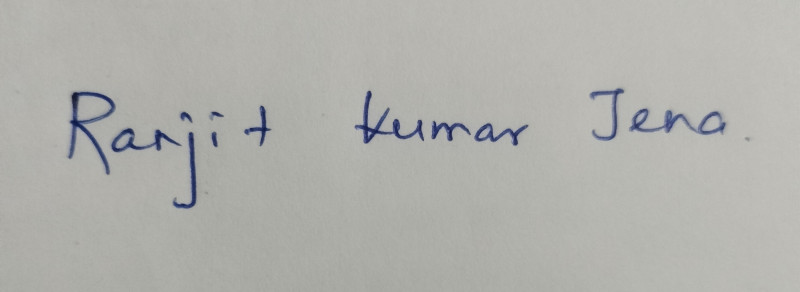 Ranjit Kumar Jena.